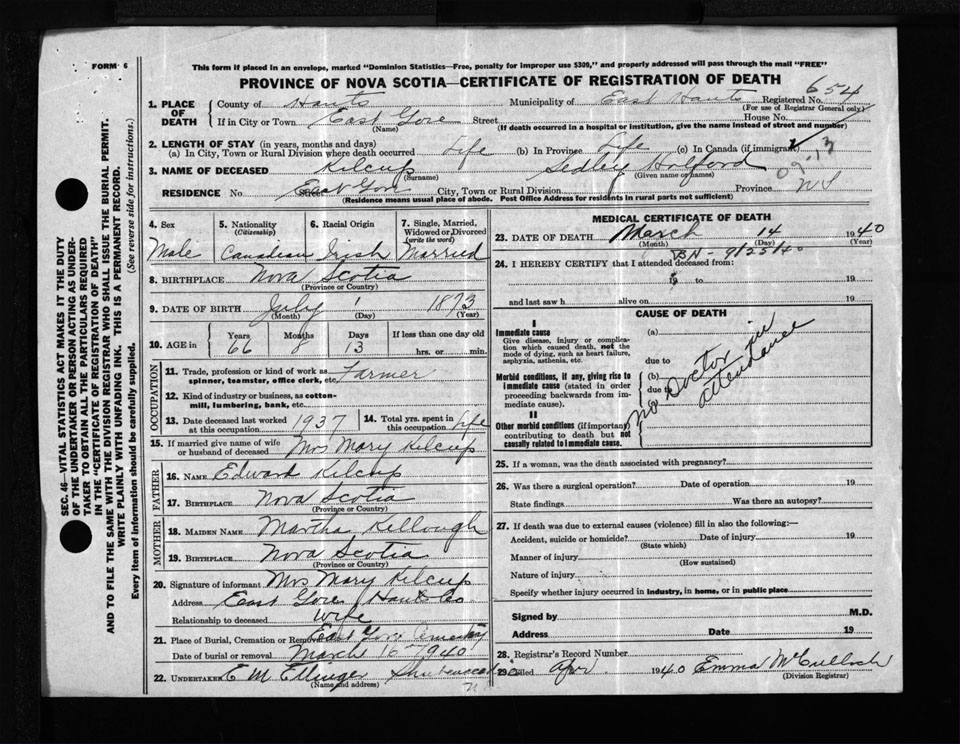 FORM 6
This form if placed in an envelope, marked "Dominion Statistics—Free, penalty for improper use $300," and properly addressed will pass through the mail "FREE"
PROVINCE OF NOVA SCOTIA—CERTIFICATE OF REGISTRATION OF DEATH
SEC. 46—VITAL STATISTICS ACT MAKES IT THE DUTY
OF THE UNDERTAKER OR PERSON ACTING AS UNDER-
TAKER TO OBTAIN ALL THE PARTICULARS REQUIRED
IN THE "CERTIFICATE OF REGISTRATION OF DEATH"
AND TO FILE THE SAME WITH THE DIVISION REGISTRAR WHO SHALL ISSUE THE BURIAL PERMIT.
WRITE PLAINLY WITH UNFADING INK. THIS IS A PERMANENT RECORD.
Every item of information should be carefully supplied. (See reverse side for instructions.)
1. PLACE OF DEATH County of Hants Municipality of East Hants Registered No. 654
(For use of Registrar General only)
If in City or Town East Gore Street House No.
(Name) (If death occurred in a hospital or institution, give the name instead of street and number)
2. LENGTH OF STAY (in years, months and days)
(a) In City, Town or Rural Division where death occurred Life (b) In Province Life (c) In Canada (if immigrant)
3. NAME OF DECEASED Kilcup Sedley Holford
(Surname) (Given name or names)
RESIDENCE No. East Gore City, Town or Rural Division Province N S
(Residence means usual place of abode. Post Office Address for residents in rural parts not sufficient)
4. Sex
Male
5. Nationality
(Citizenship)
Canadian
6. Racial Origin
Irish
7. Single, Married, Widowed or Divorced
(write the word)
Married
8. BIRTHPLACE Nova Scotia
(Province or Country)
9. DATE OF BIRTH July 1 1873
(Month) (Day) (Year)
10. AGE in Years Months Days If less than one day old
66 8 13 hrs. or min.
OCCUPATION
11. Trade, profession or kind of work as Farmer
spinner, teamster, office clerk, etc.
12. Kind of industry or business, as cotton-
mill, lumbering, bank, etc.
13. Date deceased last worked at this occupation 1937
14. Total yrs. spent in this occupation Life
15. If married give name of wife or husband of deceased Mrs Mary Kilcup
FATHER
16. NAME Edward Kilcup
17. BIRTHPLACE Nova Scotia
(Province or Country)
MOTHER
18. MAIDEN NAME Martha Kellough
19. BIRTHPLACE Nova Scotia
(Province or Country)
20. Signature of informant Mrs Mary Kilcup
Address East Gore Hants Co
Relationship to deceased wife
21. Place of Burial, Cremation or Removal East Gore Cemetery
Date of burial or removal March 16 1940
22. UNDERTAKER E M Ettinger Shubenacadie
(Name and address)
MEDICAL CERTIFICATE OF DEATH
23. DATE OF DEATH March 14 1940
(Month) (Day) (Year)
24. I HEREBY CERTIFY that I attended deceased from:
19
and last saw h alive on 19
CAUSE OF DEATH
I
Immediate cause
Give disease, injury or complica-
tion which caused death, not the
mode of dying, such as heart failure,
asphyxia, asthenia, etc.
(a)
due to
Morbid conditions, if any, giving rise to
immediate cause (stated in order
proceeding backwards from im-
mediate cause).
(b)
due to
II
Other morbid conditions (if important)
contributing to death but not
causally related to immediate cause.
No Doctor in
attendance
25. If a woman, was the death associated with pregnancy?
26. Was there a surgical operation? Date of operation 19
State findings Was there an autopsy?
27. If death was due to external causes (violence) fill in also the following:—
Accident, suicide or homicide? Date of injury 19
(State which)
Manner of injury
(How sustained)
Nature of injury
Specify whether injury occurred in industry, in home, or in public place
Signed by M.D.
Address Date 19
28. Registrar's Record Number
Filed Apr 1940 Emma McCulloch
(Division Registrar)